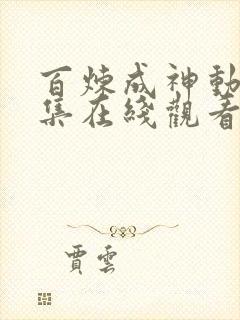 百煉成神動
集在綫觀看
賈雲